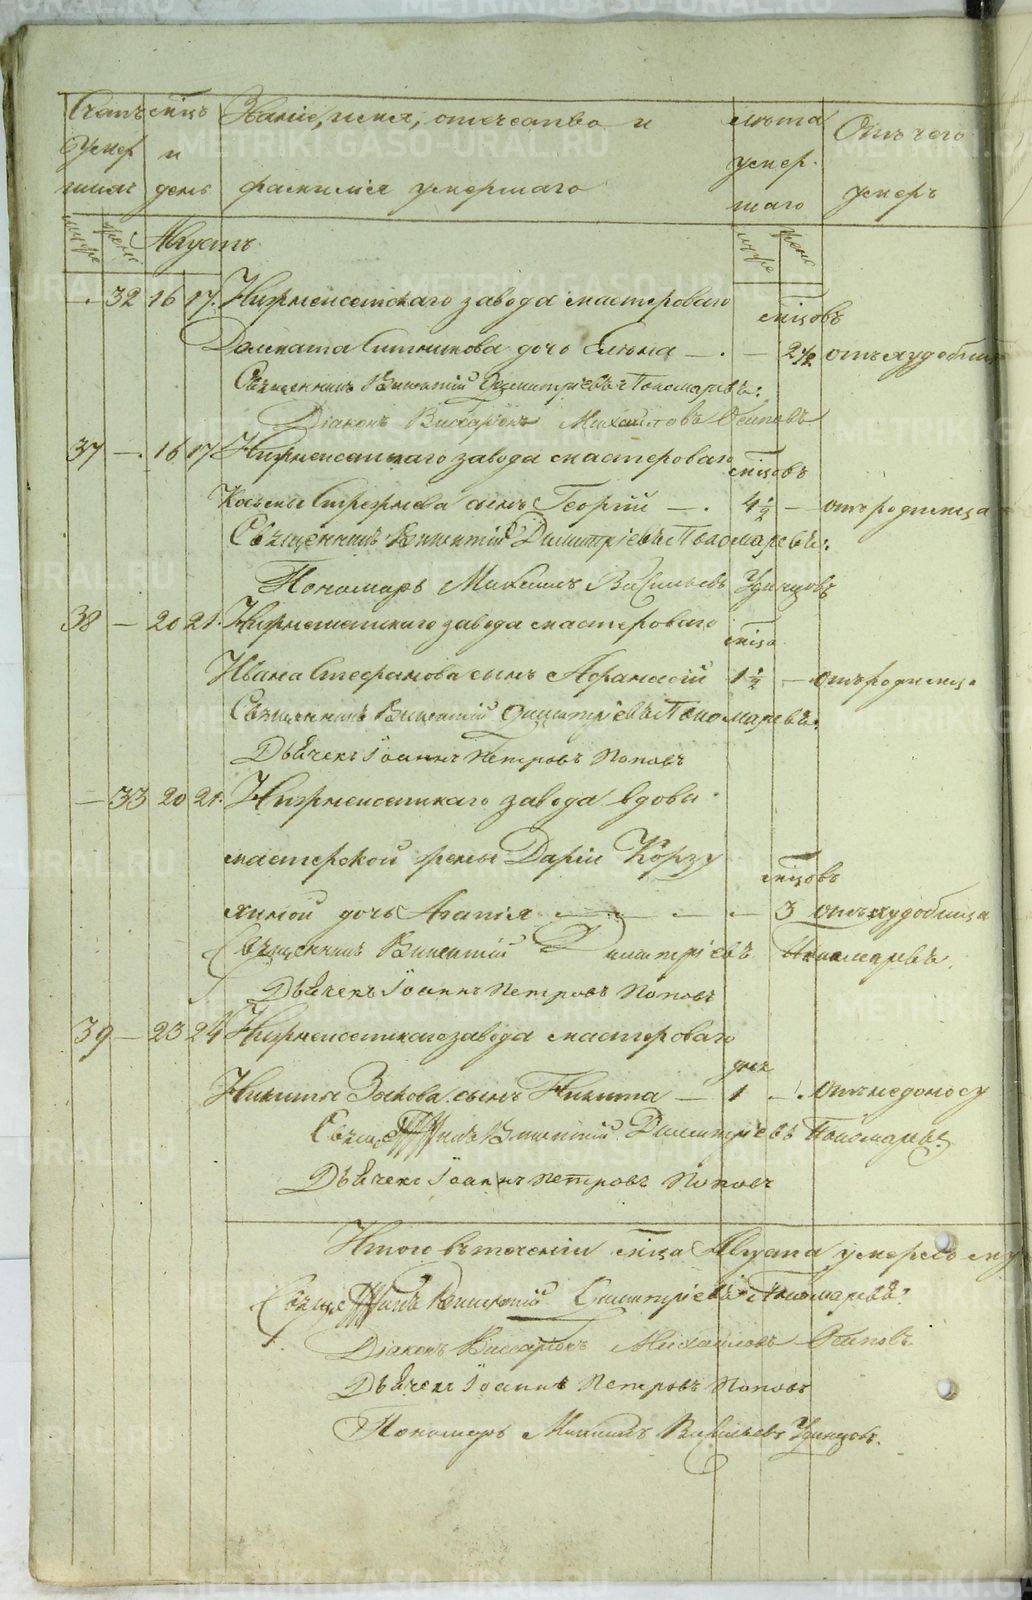 Счетъ мцъ Званіе, имя, отечество и лѣта Отъ чего
умер и умер-
шихъ день фамилія умершаго шаго умеръ
муже жене Августъ муже жене
32 16 17. Нижнеисетскаго завода мастероваго
мцовъ
Ситникова дочь Елена — 2 1/2 отъ худобища
Священникъ Викентій Димитріевъ Пономаревъ:
Діаконъ Виссаріонъ Михайловъ Осиповъ
37 — 16 17 Нижнеисетскаго завода мастероваго
мцовъ
Косьмы Стрежнева сынъ Георгій — 4 1/2 — отъ родимца
Священникъ Викентій Димитріевъ Пономаревъ:
Пономарь Михаилъ Васильевъ Удинцовъ
38 — 20 21. Нижнеисетскаго завода мастероваго
мца
Ивана Стефанова сынъ Афанасій 1 1/2 — отъ родимца
Священникъ Викентій Димитріевъ Пономаревъ:
Дьячекъ Іоаннъ Петровъ Поповъ
— 33 20 21. Нижнеисетскаго завода вдовы
мастерской жены Даріи Корзу
мцовъ
хиной дочь Агапія — — — 3 отъ худобища
Священникъ Викентій Димитріевъ Пономаревъ.
Дьячекъ Іоаннъ Петровъ Поповъ
39 — 23 24 Нижнеисетскаго завода мастероваго
дня
Никиты сынъ Никита — 1 — отъ недоносу
Священникъ Викентій Димитріевъ Пономаревъ
Дьячекъ Іоаннъ Петровъ Поповъ
Итого въ теченіи мца Августа умерло му
Священникъ Викентій Димитріевъ Пономаревъ:
Діаконъ Виссаріонъ Михайловъ Осиповъ.
Дьячекъ Іоаннъ Петровъ Поповъ
Пономарь Михаилъ Васильевъ Удинцовъ.
METRIKI.GASO-URAL.RU